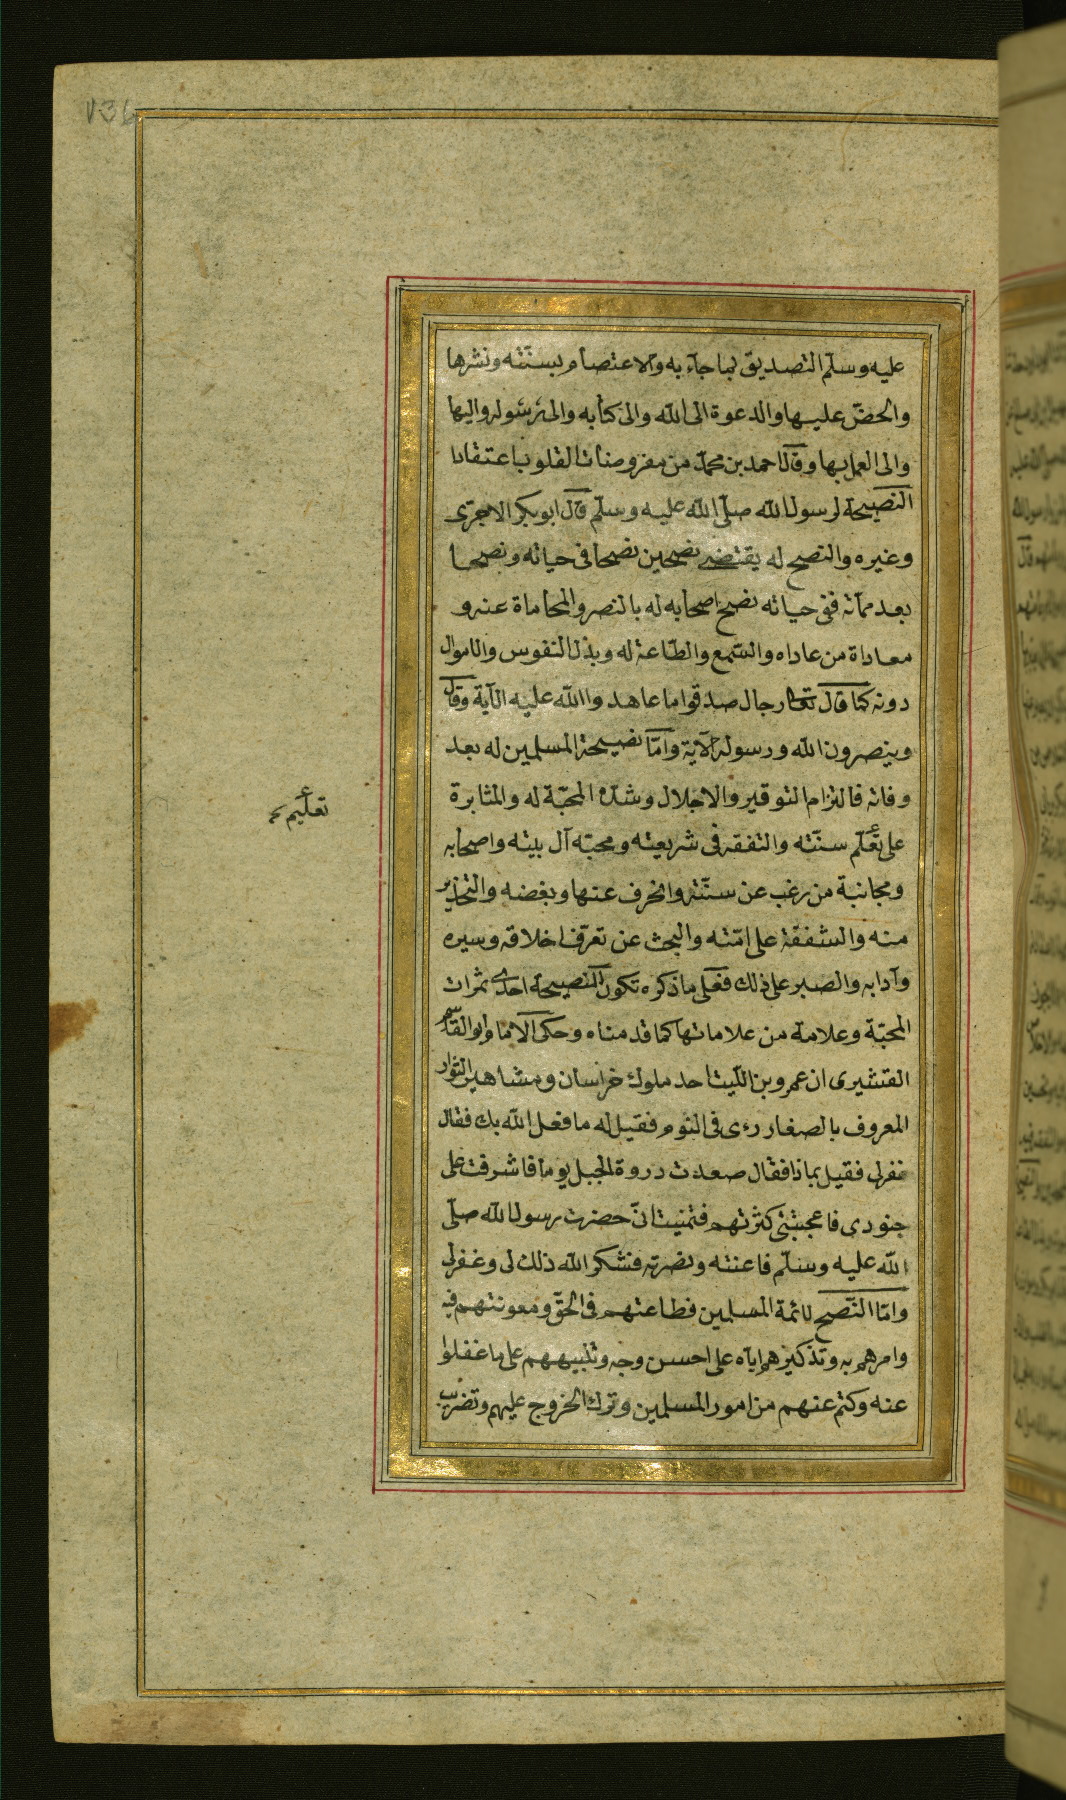 عليه وسلّم التصديق بما جآء به والاعتصام بسنّته ونشرها
والحضّ عليها والدعوة الى الله والى كتابه والى رسوله واليها
والى العمل بها وقال احمد بن محمّد من مفروضات القلوب اعتقاد
النصيحة لرسول الله صلّى الله عليه وسلّم قال ابو بكر الاجرّى
وغيره والنصح له يقتضى نصحين نصحا فى حياته ونصحا
بعد مماته ففى حياته نصح اصحابه له بالنصر والمحاماة عنه و
معاداة من عاداه والسّمع والطّاعة له وبذل النفوس والاموال
دونه كما قال تعالى رجال صدقوا ما عاهدوا الله عليه الآية وقال
وينصرون الله ورسوله الآية وامّا نصيحة المسلمين له بعد
وفاته فالتزام التوقير والاجلال وشدّة المحبّة له والمثابرة
على تعلّم سنّته والتفقه فى شريعته ومحبّة آل بيته واصحابه
ومجانبة من رغب عن سنّته وانحرف عنها وبغضه والتحذير
منه والشفقة على امّته والبحث عن تعرّف اخلاقه وسيره
وآدابه والصبر على ذلك فعلى ما ذكره تكون النصيحة احدى ثمرات
المحبّة وعلامة من علاماتها كما قدمناه وحكى الامام ابو القاسم
القشيرى ان عمرو بن اللّيث احد ملوك خراسان ومشاهير الثوار
المعروف بالصفار رءى فى النوم فقيل له ما فعل الله بك فقال
غفر لى فقيل بماذا فقال صعدت دروة الجبل يوما فاشرفت على
جنودى فاعجبتنى كثرتهم فتمنيت انّ حضرت رسول الله صلّى
الله عليه وسلّم فاعنته ونصرته فشكر الله ذلك لى وغفر لى
وامّا النّصح لائمة المسلمين فطاعتهم فى الحقّ ومعونتهم فيه
وامرهم به وتذكيرهم اياه على احسن وجه وتنبيههم على ما غفلوا
عنه وكتم عنهم من امور المسلمين وترك الخروج عليهم وتضريب
تعليم